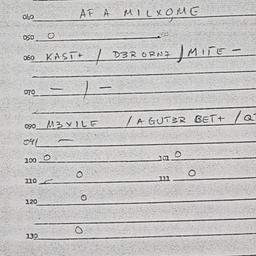 040 AF A MILXOME
050 O
060 KAST+ / D3R ORN7 / MITE -
070 - / -
090 M3XILE / A GUT3R BET+ /
091 -
100 O 101 O
110 O 111 O
120 O
130 O